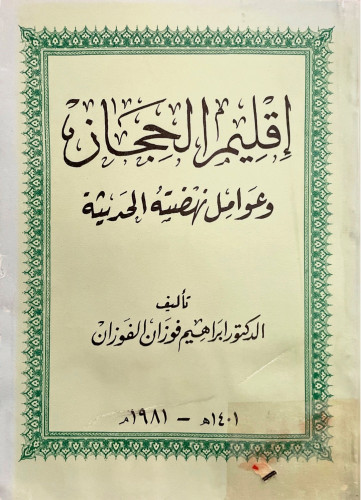 إقليم الحجاز
وعوامل نهضته الحديثة
تأليف
الدكتور ابراهيم فوزان الفوزان
١٤٠١هـ - ١٩٨١م